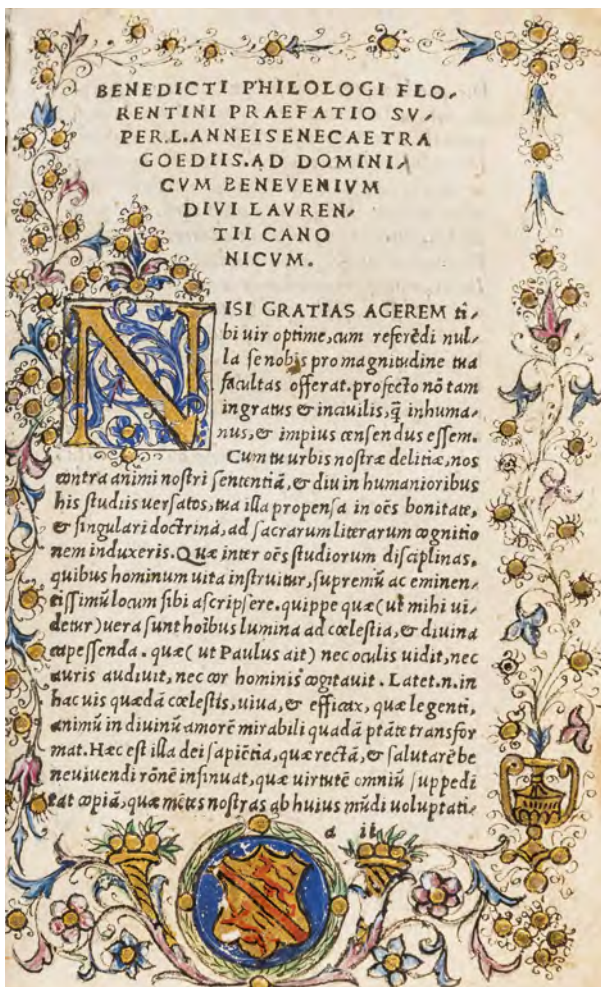 BENEDICTI PHILOLOGI FLO,
RENTINI PRAEFATIO SV,
PER.L.ANNEISENECAE TRA
GOEDIIS.AD DOMINI
CVM BENEVENIVM
DIVI LAVREN,
TII CANO
NICVM.
NISI GRATIAS AGEREM ti,
bi uir optime,cum referēdi nul,
la se nobis pro magnitudine tua
facultas offerat.profecto nō tam
ingratus & inciuilis,q̃ inhuma,
nus,& impius censendus essem.
Cum tu urbis nostræ delitiæ,nos
contra animi nostri sententiā,& diu in humanioribus
his studiis uersatos,tua illa propensa in oēs bonitate,
& singulari doctrina,ad sacrarum literarum cognitio
nem induxeris.Quæ inter oēs studiorum disciplinas,
quibus hominum uita instruitur,supremū ac eminen,
tissimū locum sibi ascripsere.quippe quæ(ut mihi ui,
detur)uera sunt hoībus lumina ad cœlestia,& diuina
capessenda.quæ(ut Paulus ait)nec oculis uidit,nec
auris audiuit,nec cor hominis cogitauit.Latet.n.in
hac uis quædā cœlestis,uiua,& efficax,quæ legenti,
animū in diuinū amorē mirabili quadā ptāte transfor
mat.Hæc est illa dei sapiētia,quæ rectā,& salutarē be
ne uiuendi rōnē insinuat,quæ uirtutē omniū suppedi
tat copiā,quæ mētes nostras ab huius mūdi uoluptati,
a ii